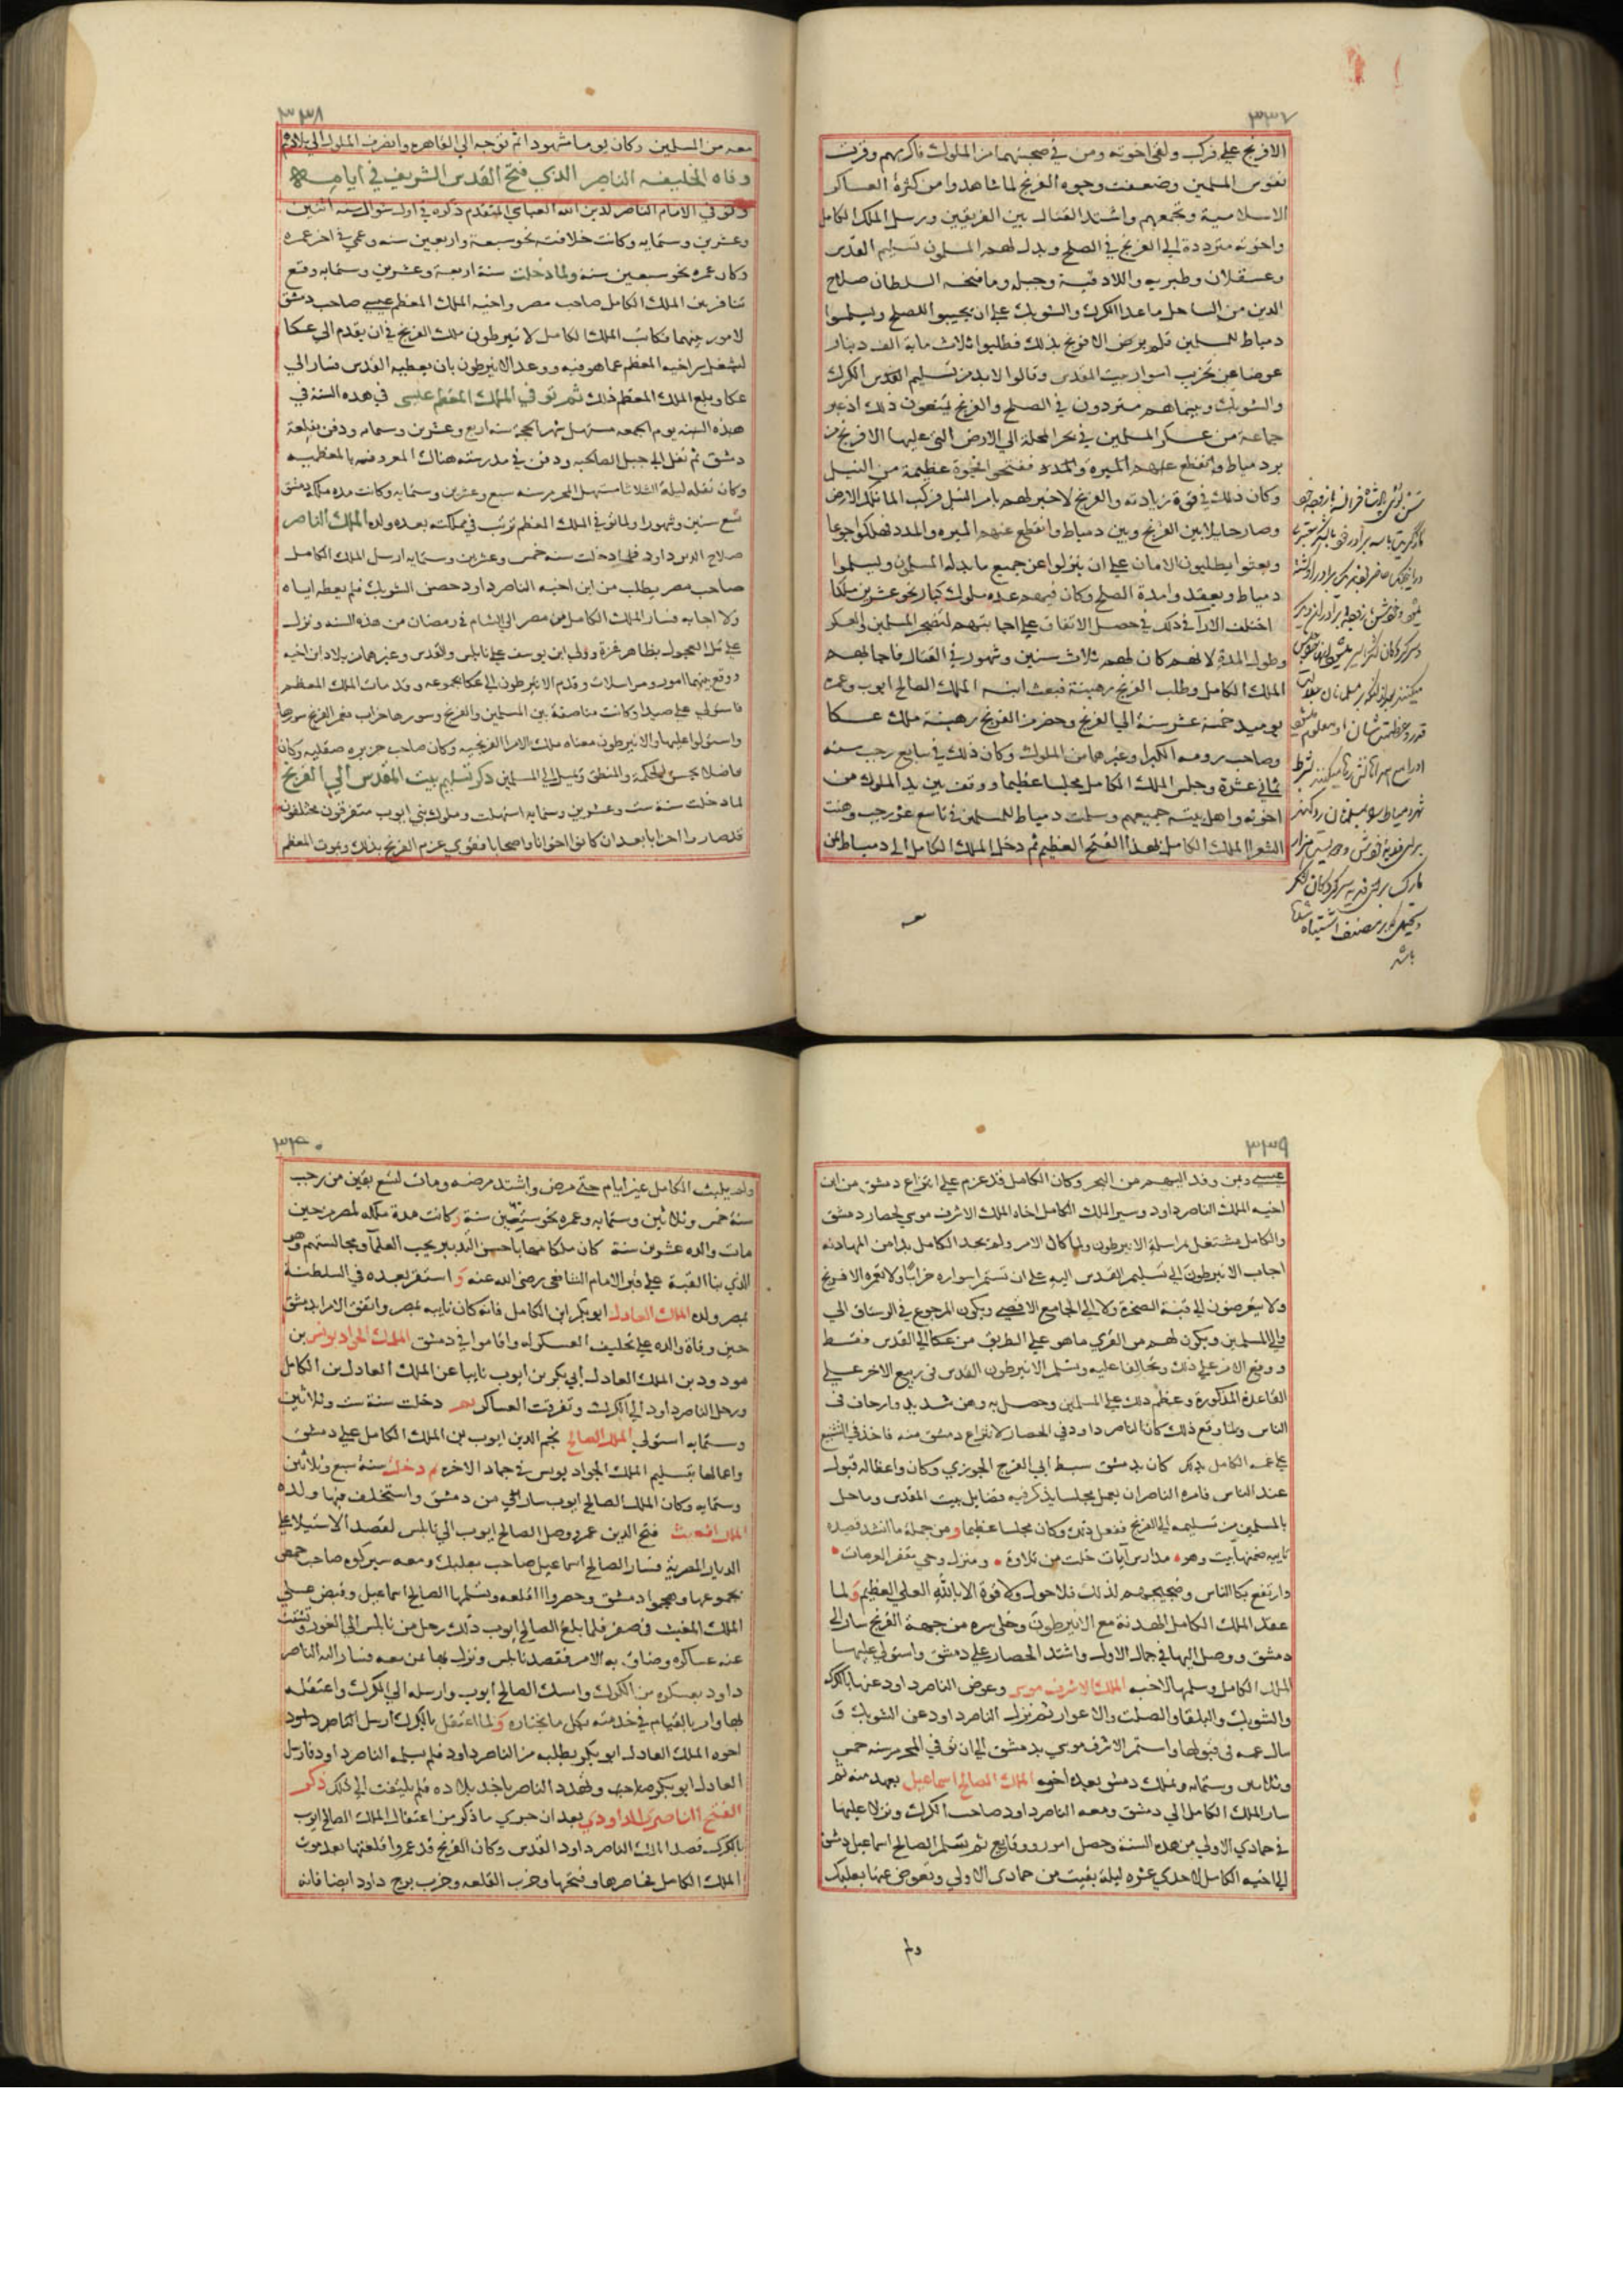 ٣٣٧
الافرنج علي فركب ولقي اخوته ومن في صحبتهما من الملوك فاكرمهم وقويت
نفوس المسلمين وضعفت وجوه الفرنج لما شاهدوا من كثرة العساكر
الاسلامية وتجمعهم واشتد القتال بين الفريقين ورسل الملك الكامل
واخوته مترددة الي الفرنج في الصلح وبذل لهم المسلمون تسليم القدس
وعسقلان وطبريه واللادقية وجبلة وما فتحه السلطان صلاح
الدين من الساحل ما عدا الكرك والشوبك علي ان يجيبوا للصلح ويسلموا
دمياط للمسلمين فلم يرض الافرنج بذلك فطلبوا ثلاث ماية الف دينار
عوضا عن تخريب اسوار بيت المقدس وقالوا لابد من تسليم القدس الكرك
والشوبك وبينما هم مترددون في الصلح والفرنج يمنعون ذلك اذ عبر
جماعة من عسكر المسلمين في بحر المحلة الي الارض التي عليها الافرنج من
بر دمياط وانقطع عنهم الميرة والمدد ففتحوا فجوة عظيمة من النيل
وكان ذلك في قوة زيادته والفرنج لا خبر لهم بامر النيل فركب الماء تلك الارض
وصار حايلا بين الفرنج وبين دمياط وانقطع عنهم الميره والمدد فهلكوا جوعا
وبعثوا يطلبون الامان علي ان ينزلوا عن جميع ما بذله المسلمون ويسلموا
دمياط ويعقد وامدة الصلح وكان فيهم عدة ملوك كبار نحو عشرين ملكا
اختلف الارآ في ذلك في حصل الاتفاق علي اجابتهم لتضجر المسلمين والعسكر
وطول المدة لانهم كان لهم ثلاث سنين وشهور في القتال فاجابهم
الملك الكامل وطلب الفرنج رهينة فبعث ابنه الملك الصالح ايوب وعمره
يوميد خمسة عشر سنة الي الفرنج وحضر من الفرنج رهينة ملك عكا
وصاحب رومه الكبرا وغيرهما من الملوك وكان ذلك في سابع رجب سنه
ثماني عشرة وجلس الملك الكامل مجلسا عظيما ووقف بين يديه الملوك من
اخوته واهل بيته جميعهم وسلمت دمياط للمسلمين في تاسع عشر رجب وهنت
الشعرا الملك الكامل بهذا الفتح العظيم ثم دخل الملك الكامل الي دمياط بمن
معه
٣٣٨
معه من المسلمين وكان يوما مشهودا ثم توجه الي القاهره وانصرف الملوك الي بلادهم
وفاه الخليفه الناصر الذي فتح القدس الشريف في ايامه
وتوفي الامام الناصر لدين الله العباسي المتقدم ذكره في اول شوال سنه اثنين
وعشرين وستمايه وكانت خلافته نحو سبعة واربعين سنه وعمي في اخر عمره
وكان عمره نحو سبعين سنه ولما دخلت سنة اربعة وعشرين وستمايه وقع
تنافر بين الملك الكامل صاحب مصر واخيه الملك المعظم عيسي صاحب دمشق
لامور بينهما فكاتب الملك الكامل لانبرطون ملك الفرنج في ان يقدم الي عكا
ليشغل سر اخيه المعظم عما هو فيه ووعد الانبرطون بان يعطيه القدس فسار الي
عكا وبلغ الملك المعظم ذلك ثم توفي الملك المعظم عيسي في هذه السنة في
هذه السنه يوم الجمعه مستهل شهر الحجة سنه اربع وعشرين وستمايه ودفن بقلعة
دمشق ثم نقل الي جبل الصالحيه ودفن في مدرسته هناك المعروفه بالمعظميه
وكان نقله ليلة الثلاثا مستهل المحرم سنه سبع وعشرين وستمايه وكانت مده ملكه دمشق
تسع سنين وشهورا ولما توفي الملك المعظم ترتب في مملكته بعده ولده الملك الناصر
صلاح الدين داود فلما دخلت سنه خمس وعشرين وستمايه ارسل الملك الكامل
صاحب مصر يطلب من ابن اخيه الناصر داود حصن الشوبك فلم يعطه اياه
ولا اجابه فسار الملك الكامل من مصر الي الشام في رمضان من هذه السنه ونزل
علي تل العجول بظاهر غزة وولي ابن يوسف علي نابلس والقدس وغيرهما من بلاد ابن اخيه
ووقع بينهما امور ومراسلات وقدم الانبرطون الي عكا بجموعه وقد مات الملك المعظم
فاستولي علي صيدا وكانت مناصفة بين المسلمين والفرنج وسورها خراب فعمر الفرنج سورها
واستولوا عليها والانبرطون معناه ملك الامرا الفرنجيه وكان صاحب جزيره صقليه وكان
فاضلا يحسن الحكمة والمنطق ويميل الي المسلمين ذكر تسليم بيت المقدس الي الفرنج
لما دخلت سنة ست وعشرين وستمايه استهلت وملوك بني ايوب متفرقون مختلفون
قد صاروا احزابا بعد ان كانوا اخوانا واصحابا فقوي عزم الفرنج بذلك وبموت المعظم
٣٣٩
عيسي وبمن وفد اليهم من البحر وكان الكامل قد عزم علي انتزاع دمشق من ابن
اخيه الملك الناصر داود وسير الملك الكامل اخاه الملك الاشرف موسي لحصار دمشق
والكامل مشتغل بمراسلة الانبرطون ولما طال الامر ولم يجد الكامل بدا من المهادنه
اجاب الانبرطون الي تسليم القدس اليه علي ان تستمر اسواره خرابا ولا تعمره الافرنج
ولا يتعرضون الي قبة الصخرة ولا الي الجامع الاقصي ويكون المرجوع في الرستاق الي
والي المسلمين ويكون لهم من القري ما هو علي الطريق من عكا الي القدس فقط
ووقع الامر علي ذلك وتحالفا عليه وتسلم الانبرطون القدس في ربيع الاخر علي
القاعدة المذكورة وعظم ذلك علي المسلمين وحصل به وهن شديد وارجاف في
الناس ولما وقع ذلك كان الناصر داود في الحصار لانتزاع دمشق منه فاخذ في التشنيع
علي عمه الكامل بذلك كان بدمشق سبط ابي الفرج الجوزي وكان واعظا له قبول
عند الناس فامره الناصر ان يعمل مجلسا يذكر فيه فضايل بيت المقدس وما حل
بالمسلمين من تسليمه الي الفرنج ففعل ذلك وكان مجلسا عظيما ومن جملة ما انشد قصيده
تاييه ضمنها بيت وهو مدارس آيات خلت من تلاوة ومنزل وحي مقفر العرصات
وارتفع بكا الناس وضجيجهم لذلك فلا حول ولا قوة الا بالله العلي العظيم ولما
عقد الملك الكامل الهدنة مع الانبرطون وخلي سره من جهة الفرنج سار الي
دمشق ووصل اليها في جماد الاول واشتد الحصار علي دمشق واستولي عليها
الملك الكامل وسلمها لاخيه الملك الاشرف موسي وعوض الناصر داود عنها بالكرك
والشوبك والبلقا والصلت والاغوار ثم نزل الناصر داود عن الشوبك و
سال عمه في قبولها واستمر الاشرف موسي بدمشق الي ان توفي في المحرم سنه خمس
وثلاثين وستمايه وتملك دمشق بعده اخوه الملك الصالح اسماعيل بعهد منه ثم
سار الملك الكامل الي دمشق ومعه الناصر داود صاحب الكرك ونزلا عليها
في جمادي الاولي من هذه السنة وحصل امور ووقايع ثم تسلم الصالح اسماعيل دمشق
الي اخيه الكامل لاحدي عشره ليلة بقيت من جمادي الاولي وتعوض عنها بعلبك
ولم
٣٤٠
ولم يلبث الكامل غير ايام حتي مرض واشتد مرضه ومات لتسع بقين من رجب
سنة خمس وثلاثين وستمايه وعمره نحو ستين سنة وكانت مدة ملكه لمصر من حين
مات والده عشرون سنة كان ملكا مهابا حسن التدبير يحب العلمآ ومجالستهم وهو
الذي بنا القبة علي قبر الامام الشافعي رضي الله عنه و استقر بعده في السلطنة
بمصر ولده الملك العادل ابو بكر ابن الكامل فانه كان نايبه بمصر واتفق الامرا بدمشق
حين وفاة والده علي تحليف العسكر له واقاموا في دمشق الملك الجواد يونس بن
مودود بن الملك العادل ابي بكر بن ايوب نايبا عن الملك العادل بن الكامل
ورحل الناصر داود الي الكرك وتفرقت العساكر ثم دخلت سنة ست وثلاثين
وستمايه استولي الملك الصالح نجم الدين ايوب بن الملك الكامل علي دمشق
واعمالها بتسليم الملك الجواد يونس في جماد الاخره ثم دخلت سنة سبع وثلاثين
وستمايه وكان الملك الصالح ايوب سار الي من دمشق واستخلف فيها ولده
الملك المغيث فتح الدين عمر ووصل الصالح ايوب الي نابلس لقصد الاستيلا علي
الديار المصرية فسار الصالح اسماعيل صاحب بعلبك ومعه شيركوه صاحب حمص
بجموعها وهجموا دمشق وحصروا القلعه وتسلمها الصالح اسماعيل وقبض علي
الملك المغيث في صفر فلما بلغ الصالح ايوب ذلك رحل من نابلس الي الغور وتشتت
عنه عساكره وضاق به الامر فقصد نابلس ونزل بها بمن معه فسار اليه الناصر
داود بعسكره من الكرك وامسك الصالح ايوب وارسله الي الكرك واعتقله
بها وامر بالقيام في خدمته بكل ما يختاره ولما اعتقل بالكرك ارسل الناصر داود
اخوه الملك العادل ابو بكر يطلبه من الناصر داود فلم يسلمه الناصر داود فارسل
العادل ابو بكر صاحب وتهدد الناصر باخذ بلاده فلم يلتفت الي ذلك ذكر
الفتح الناصري الداودي بعد ان جري ما ذكر من اعتقال الملك الصالح ايوب
بالكرك قصد الملك الناصر داود القدس وكان الفرنج قد عمروا قلعتها بعد موت
الملك الكامل فحاصرها وفتحها وخرب القلعه وخرب برج داود ايضا فانه